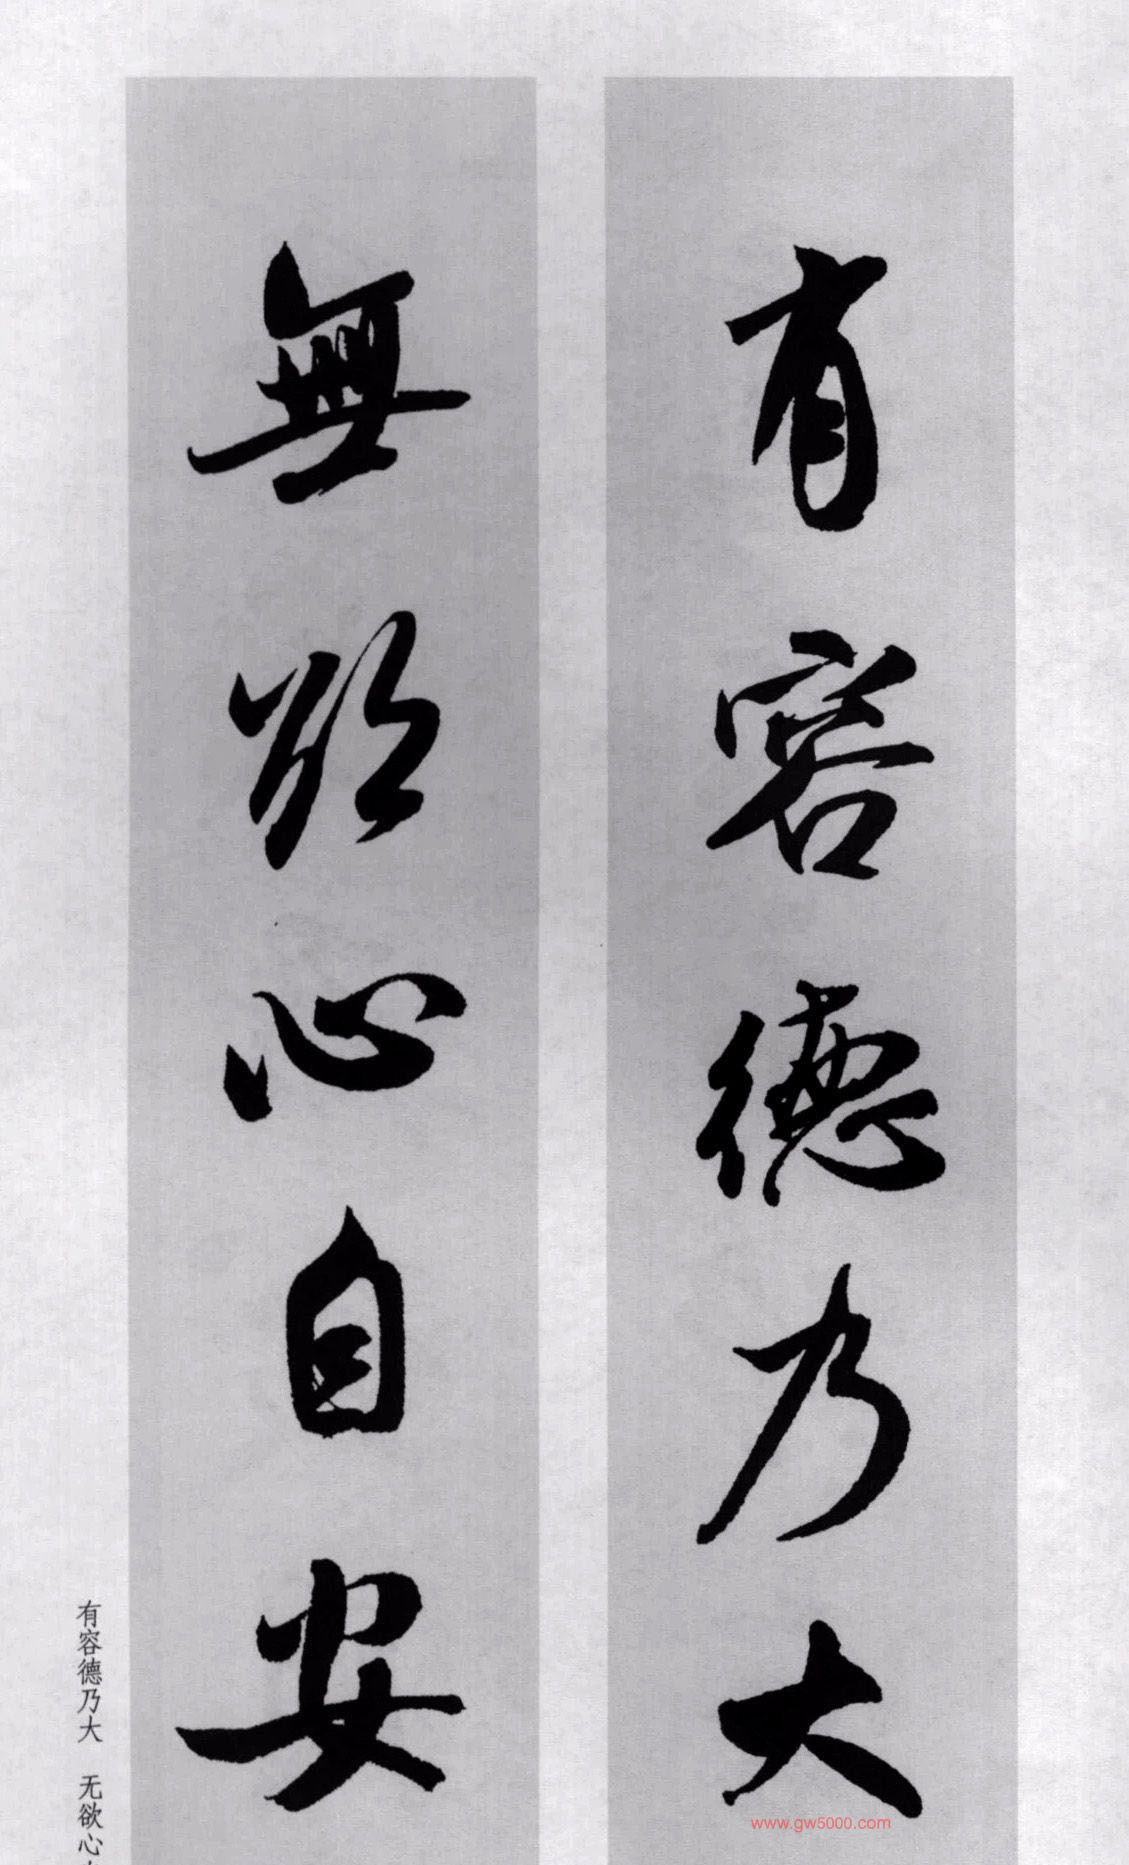 有容德乃大
無欲心自安
有容德乃大 无欲心
www.gw5000.com